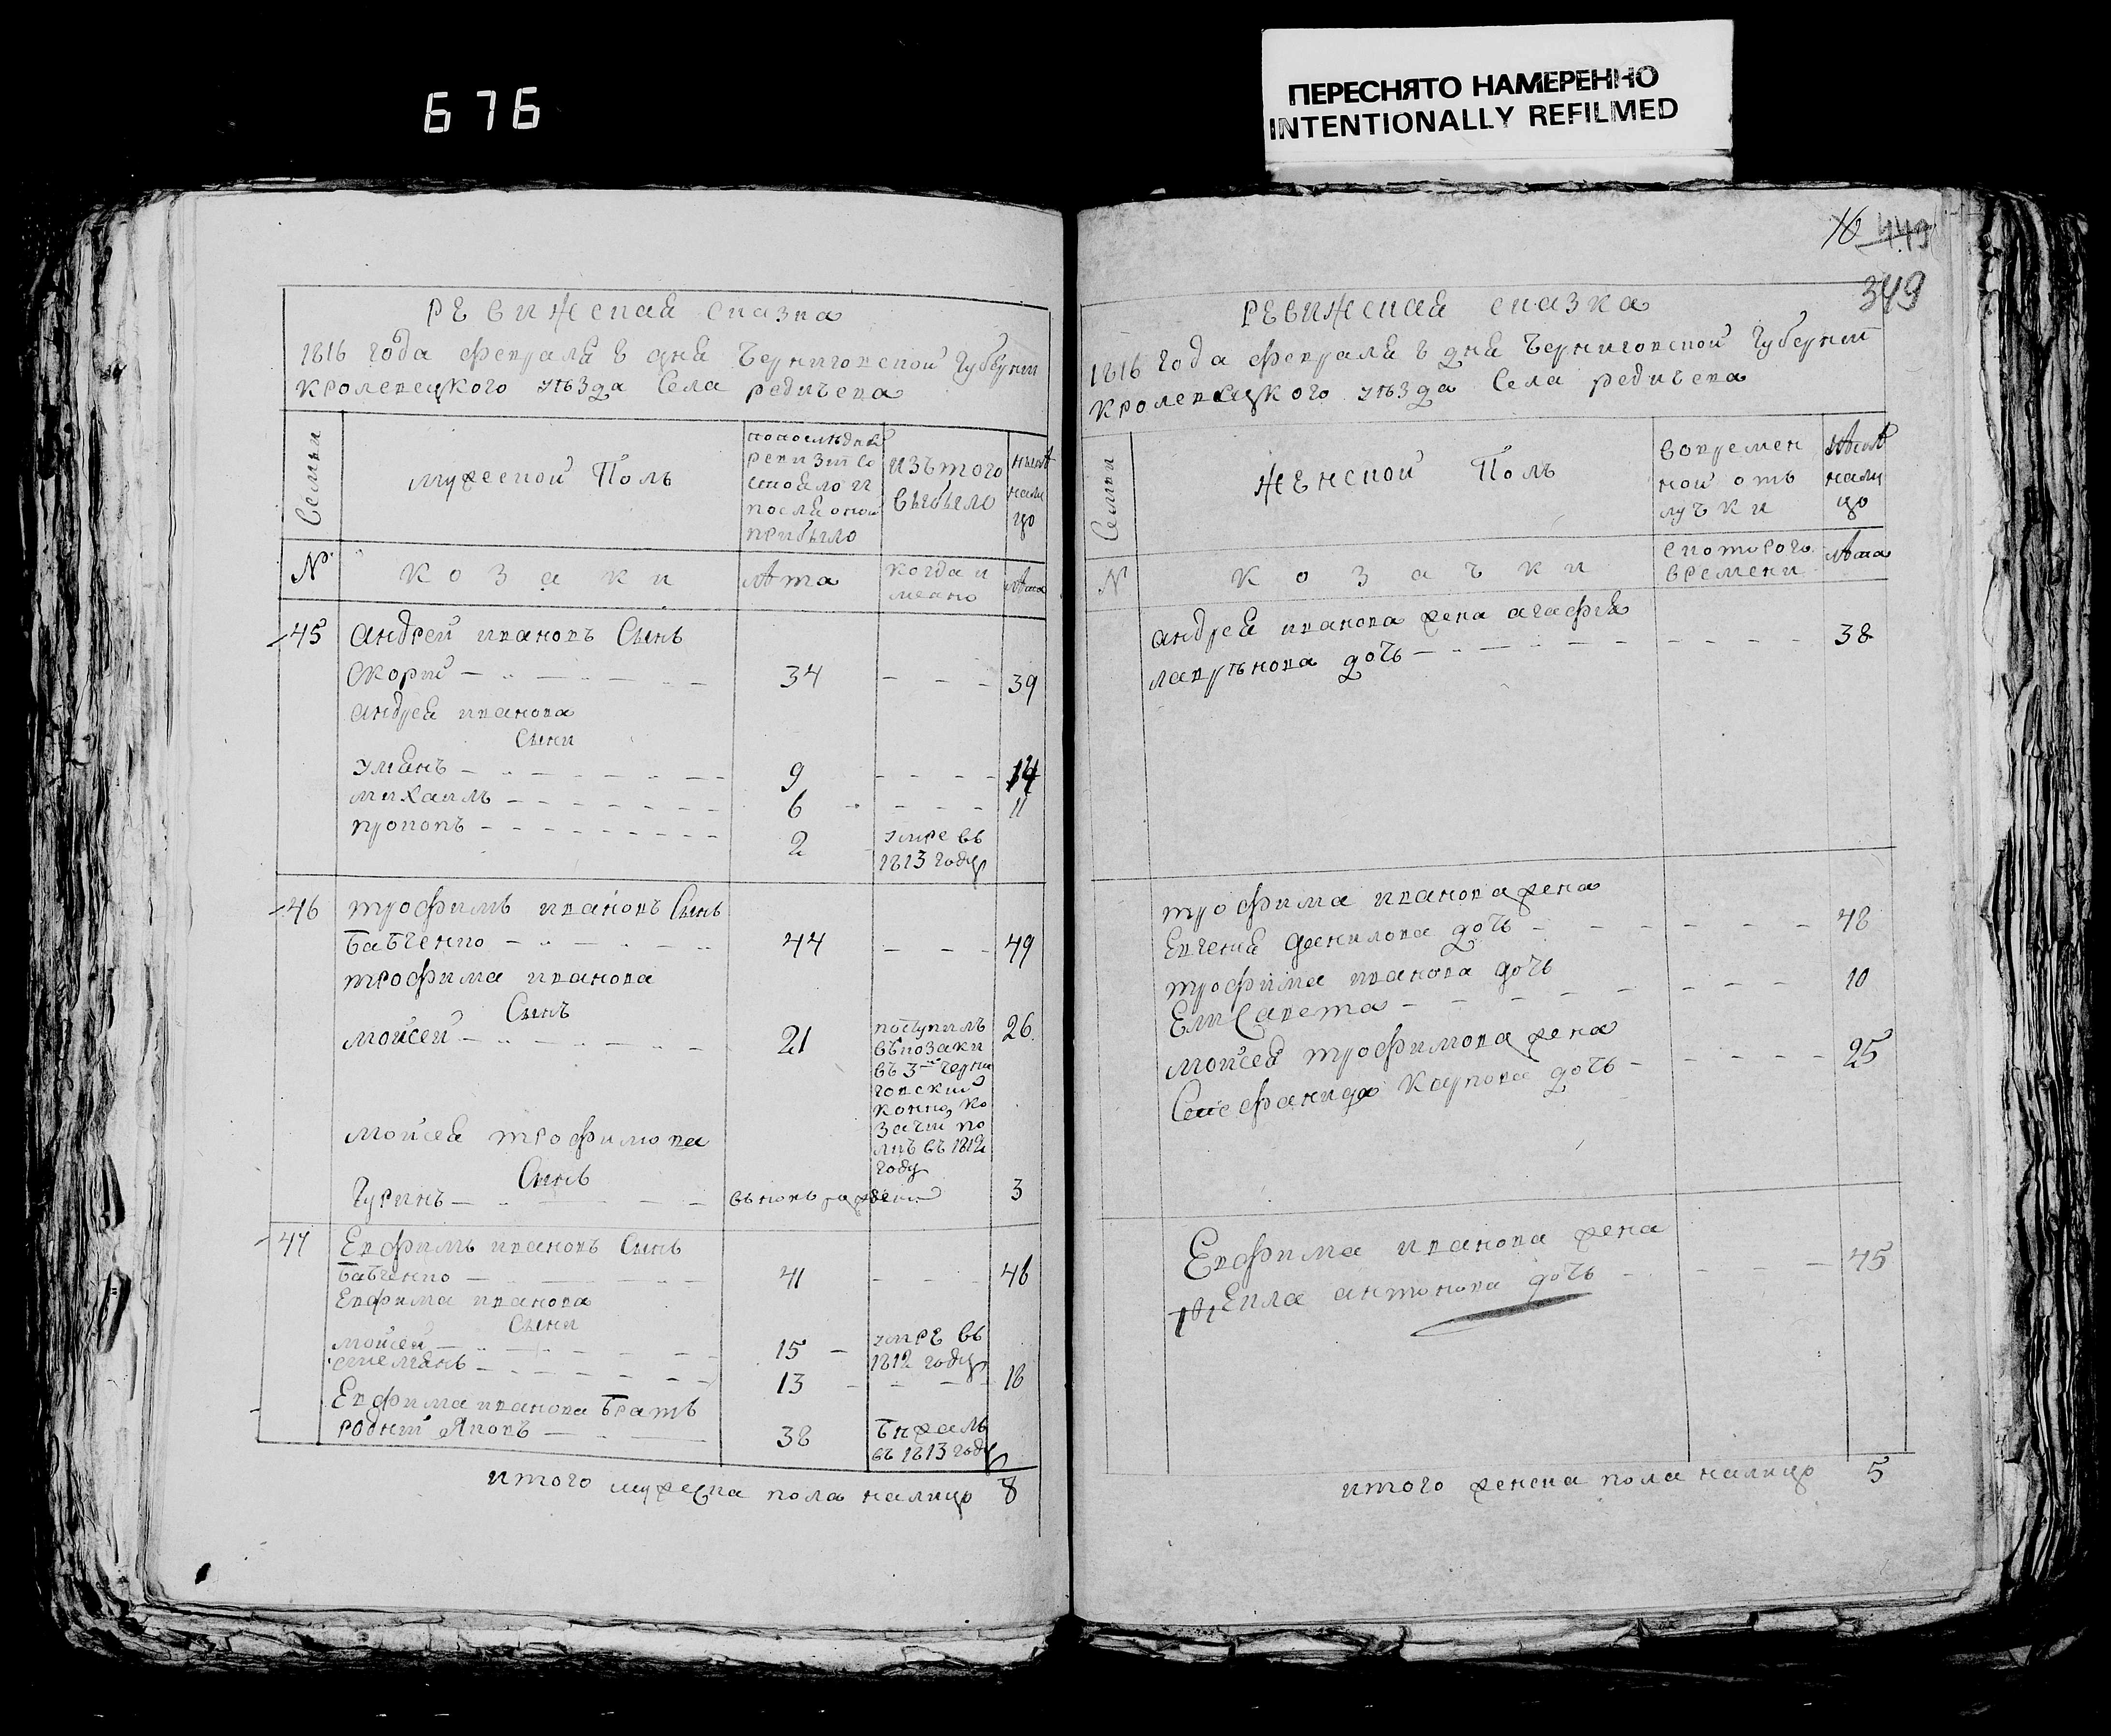 676
ПЕРЕСНЯТО НАМЕРЕННО
INTENTIONALLY REFILMED
ревижская сказка
1816 года февраля дня Черниговской Губернии
кролевецкого уѣзда Села редичева
Семьи
мужеской Полъ
попослѣдней
ревизіи со
стояло и
после оной
прибыло
изътого
выбыло
нынѣ
нали
цо
№
козаки
лѣта
когда и
лѣта
45
андрей ивановъ Сынъ
Скорий
34
39
андрея иванова
Сыни
9
14
михаилъ
6
11
прокопъ
2
умре въ
1813 году
46
трофимъ ивановъ Сынъ
бабченко
44
49
трофима иванова
Сынъ
мойсей
21
26
поступилъ
въкозаки
въ 3й черни
говский
конно ко
зачий по
лкъ въ 1812
году
мойсея трофимова
Сынъ
Гуринъ
вьновь рожден
3
47
Евфимъ ивановъ Сынъ
бабченко
41
46
Евфима иванова
Сыни
мойсей
15
умре въ
1812 году
13
18
Евфима иванова братъ
родний Яковъ
38
бѣжалъ
въ 1813 году
итого мужеска пола налицо 8
16 449
349
ревижская сказка
1816 года февраля дня Черниговской Губернии
кролевецкого уѣзда Села редичева
Семьи
женской Полъ
вовремен
ной отъ
лучки
нынѣ
нали
цо
№
козачки
с которого
времени
лѣта
андрея иванова жена агафия
лаврѣнова дочь
38
трофима иванова жена
Евгения данилова дочь
48
трофима иванова дочь
Елисавета
10
мойсея трофимова жена
Карпова дочь
25
Евфима иванова жена
антонова дочь
45
итого женска пола налицо 5